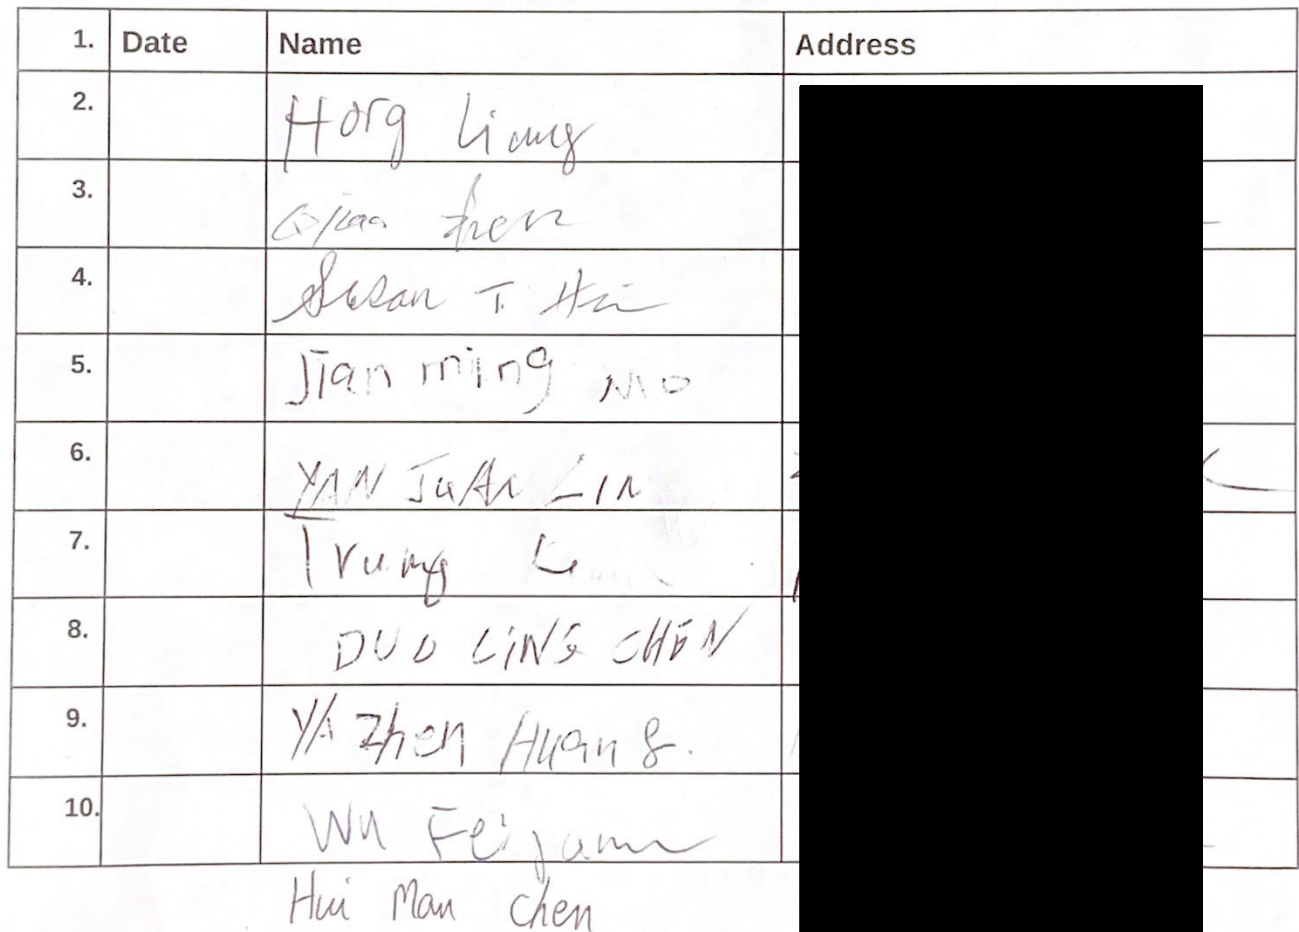 1. Date Name Address
2. Hong Liang
3. Qiao zhen
4. Susan T.
5. Jian ming mo
6. YAN JuAN LIN
7. Trung
8. DUO LiNG CHEN
9. YA Zhen Huang.
10. Wu
Hui Man Chen